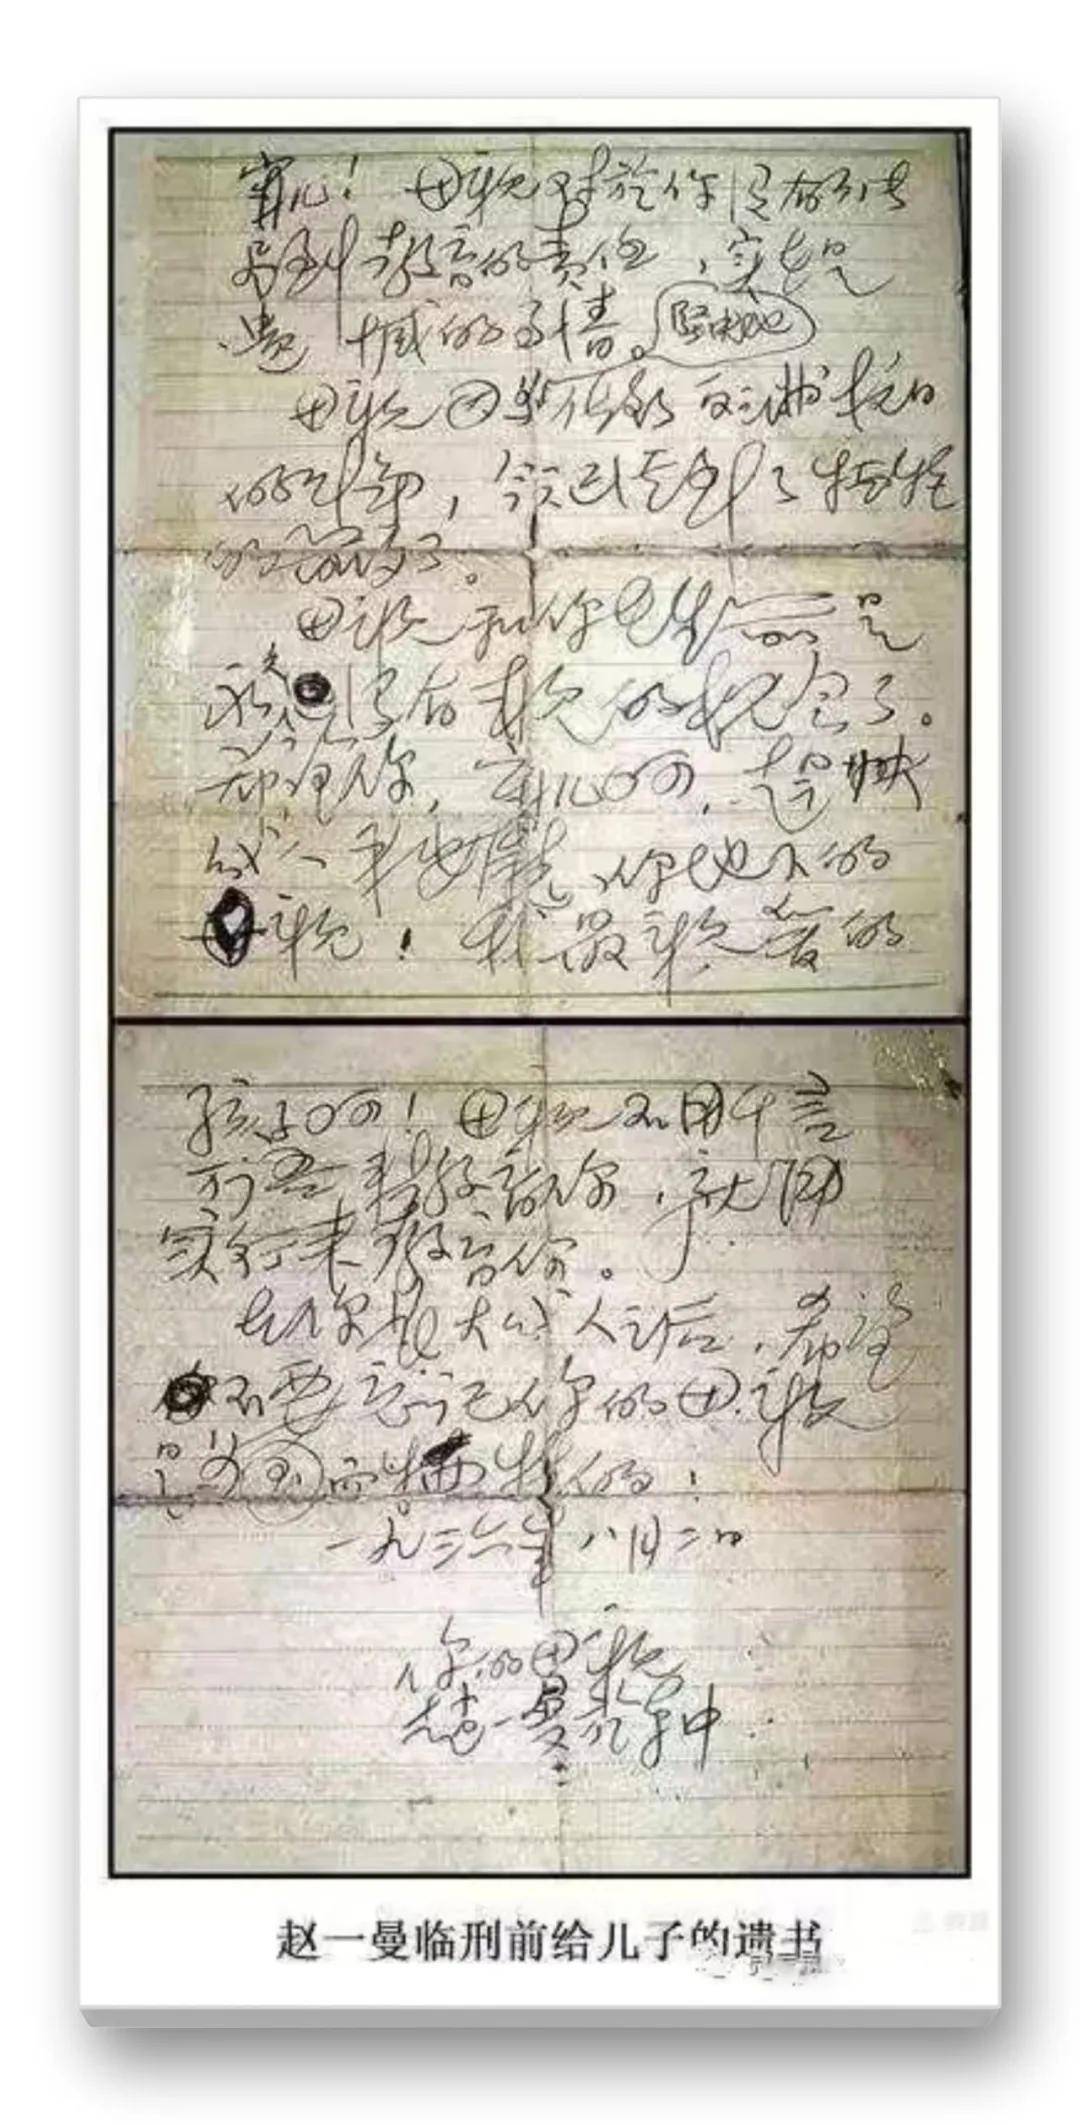 宁儿！母亲对於你没有能尽
到教育的责任，实在是
遗憾的事情。
坚决地
母亲因为 做了反满抗日
的斗争，今天已经到了牺牲
的前夕了。
母亲和你在生前是
永久没有再见的机会了。
希望你，宁儿啊，赶快
成人，来安慰你地下的
母亲！我最亲爱的
孩子啊！母亲不用千言
万语来教育你，就用
实行来教育你。
在你长大成人之后，希望
不要忘记你的母亲
是为国而牺牲的！
一九三六年八月二日
你的母亲
赵一曼於车中
赵一曼临刑前给儿子的遗书